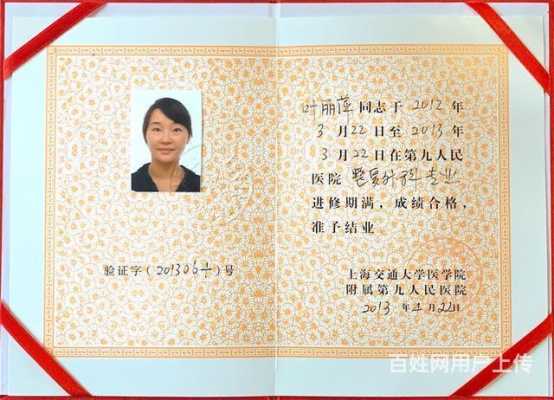 验证字(201306)号
叶丽萍同志于2012年
3月22日至2013年
3月22日在第九人民
医院整复外科专业
进修期满，成绩合格，
准予结业
上海交通大学医学院
附属第九人民医院
2013年4月22日
百姓网用户上传